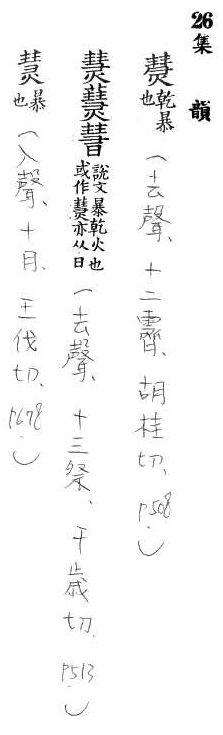 26 集韻
熭 乾暴也(去聲、十二霽、胡桂切、p508.)
熭 說文暴乾火也或作亦从日(去聲、十三祭、于歲切、p513.)
熭 暴也(入聲、十月、王伐切、p678.)